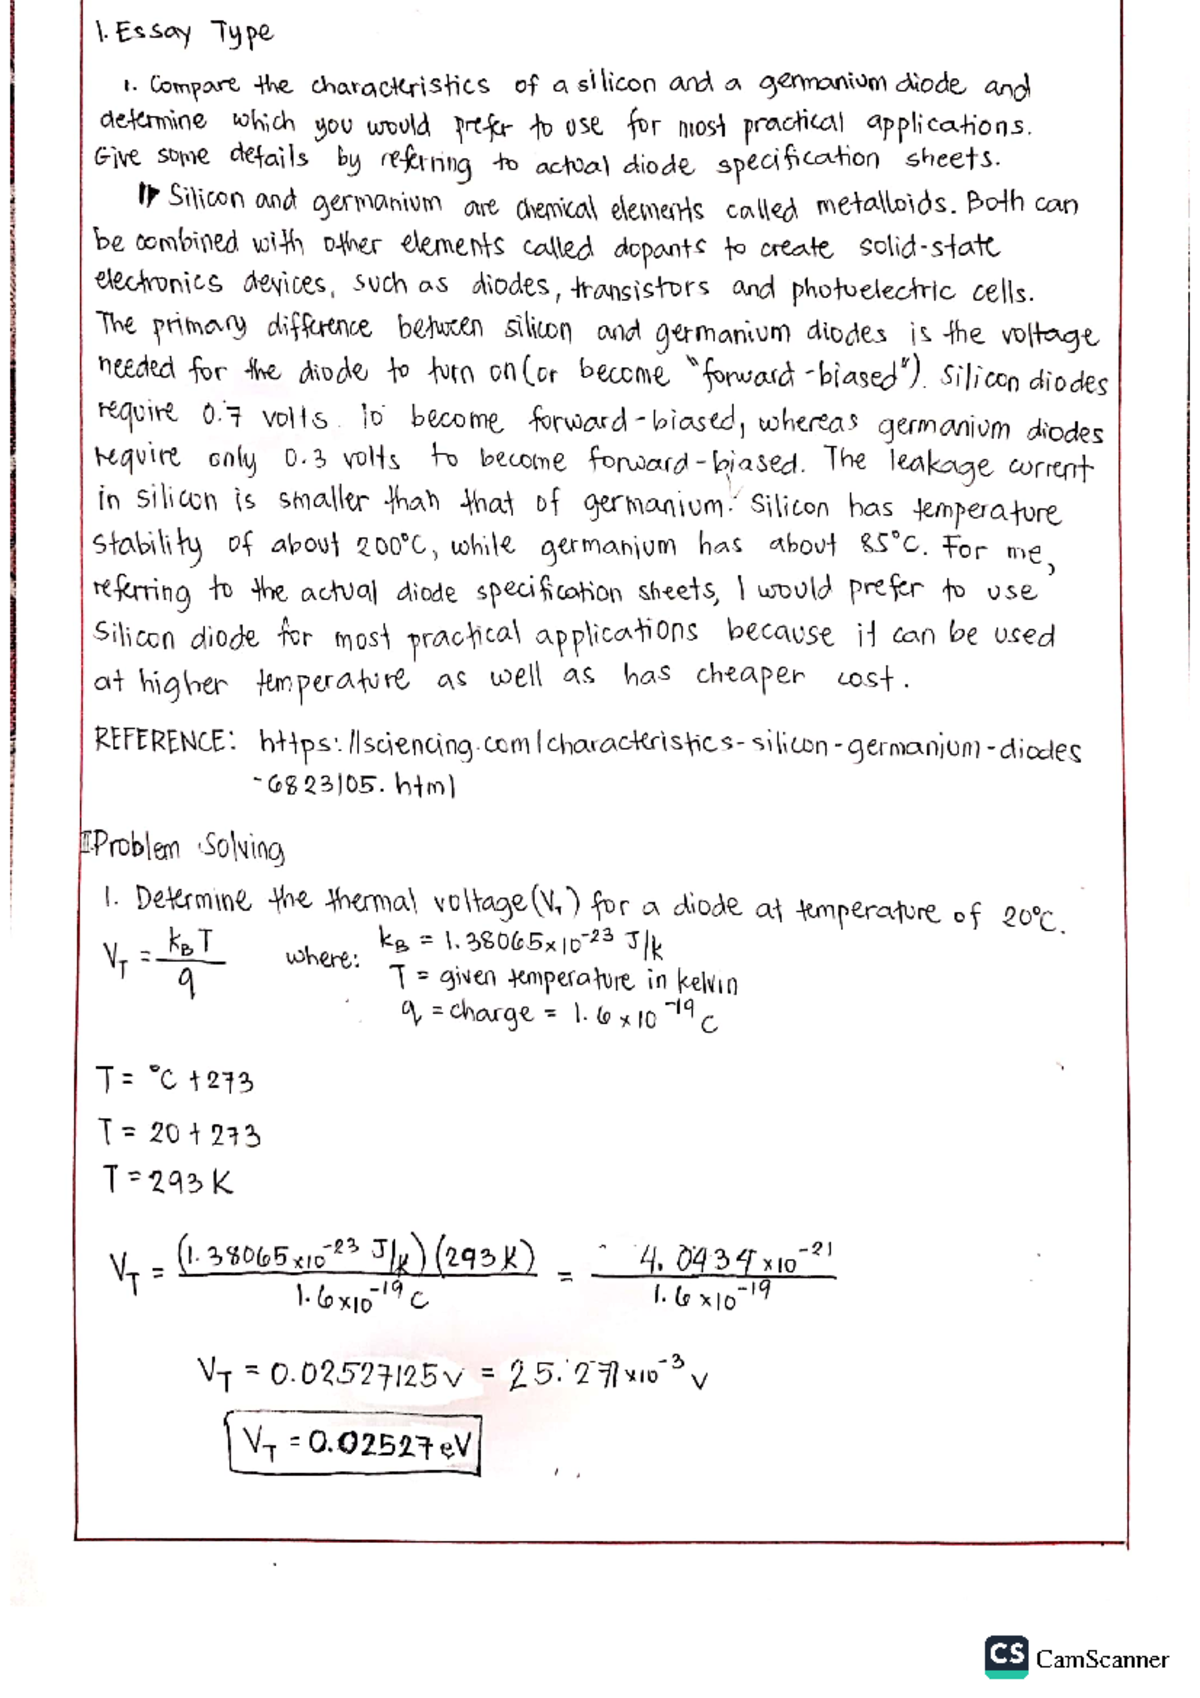 1. Essay Type
1. Compare the characteristics of a silicon and a germanium diode and
determine which you would prefer to use for most practical applications.
Give some details by referring to actual diode specification sheets.
Silicon and germanium are chemical elements called metalloids. Both can
be combined with other elements called dopants to create solid-state
electronics devices, such as diodes, transistors and photoelectric cells.
The primary difference between silicon and germanium diodes is the voltage
needed for the diode to turn on (or become "forward-biased"). Silicon diodes
require 0.7 volts. To become forward-biased, whereas germanium diodes
require only 0.3 volts to become forward-biased. The leakage current
in silicon is smaller than that of germanium. Silicon has temperature
stability of about 200°C, while germanium has about 85°C. For me,
referring to the actual diode specification sheets, I would prefer to use
Silicon diode for most practical applications because it can be used
at higher temperature as well as has cheaper cost.
REFERENCE: https://sciencing.com/characteristics-silicon-germanium-diodes
-6823105.html
II. Problem Solving
1. Determine the thermal voltage (V_T) for a diode at temperature of 20°C.
V_T = k_B T / q where: k_B = 1.38065x10^-23 J/k
T = given temperature in kelvin
q = charge = 1.6x10^-19 C
T = °C + 273
T = 20 + 273
T = 293 K
V_T = (1.38065x10^-23 J/k)(293 K) / 1.6x10^-19 C = 4.0434x10^-21 / 1.6x10^-19
V_T = 0.02527125 V = 25.271x10^-3 V
V_T = 0.02527 eV
CS CamScanner